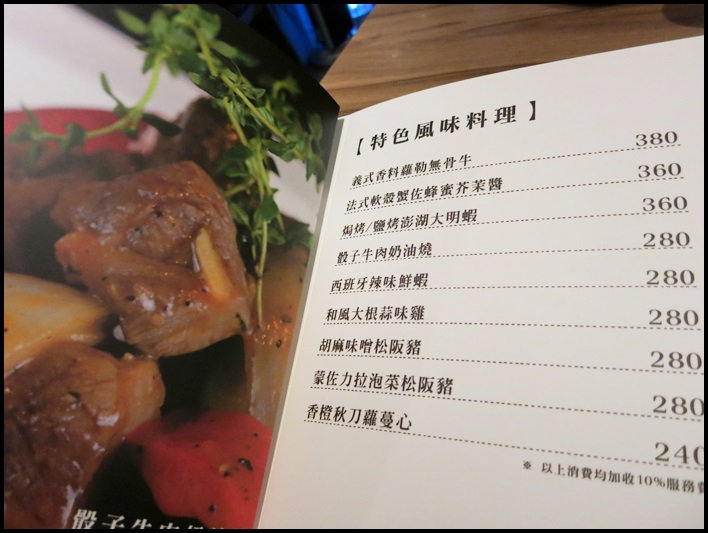 【特色風味料理】
義式香料蘿勒無骨牛 380
法式軟殼蟹佐蜂蜜芥茉醬 360
焗烤/鹽烤澎湖大明蝦 360
骰子牛肉奶油燒 280
西班牙辣味鮮蝦 280
和風大根蒜味雞 280
胡麻味噌松阪豬 280
蒙佐力拉泡菜松阪豬 280
香橙秋刀蘿蔓心 240
※ 以上消費均加收10%服務費
骰子牛肉